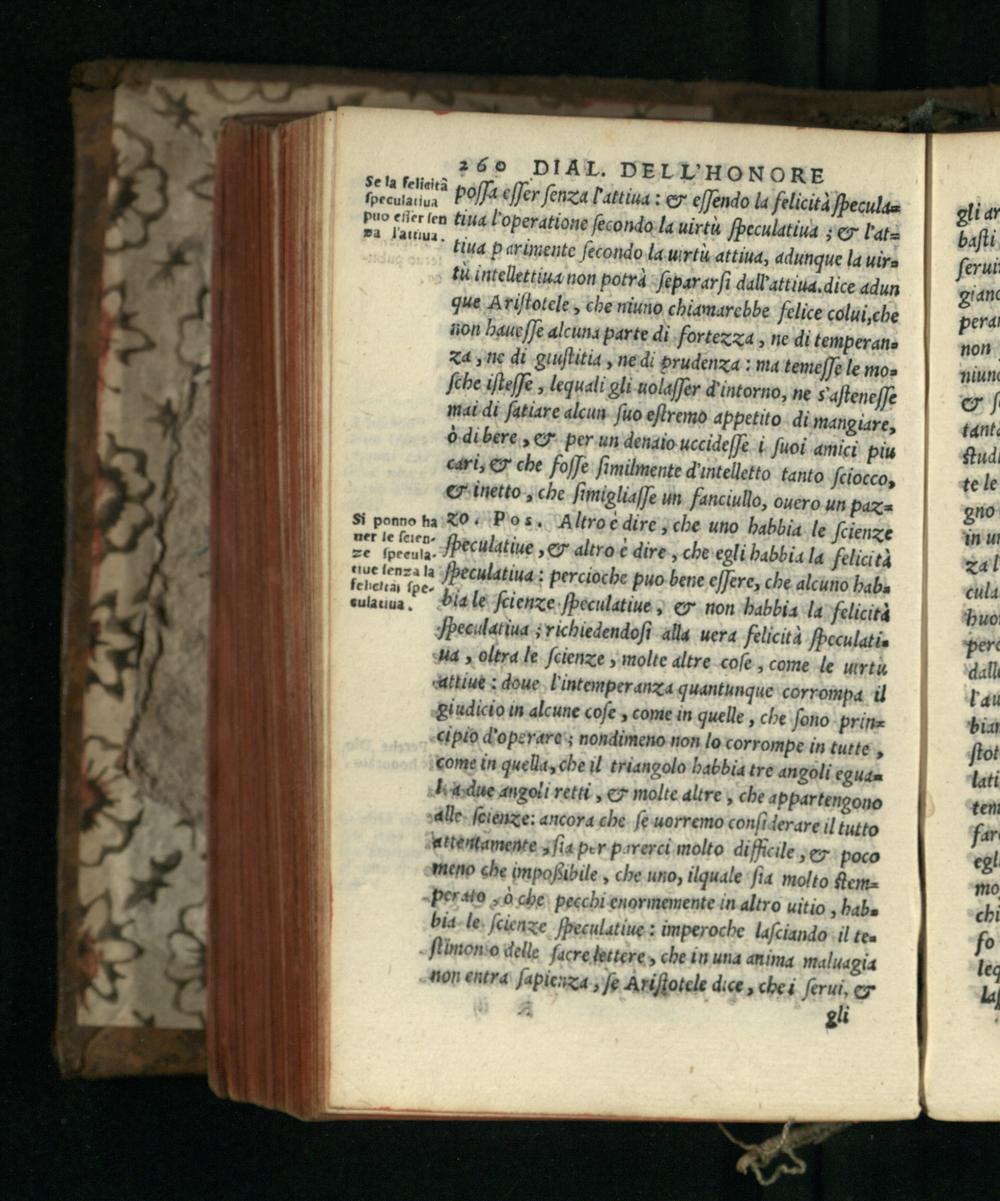 260 DIAL. DELL'HONORE
Se la felicità
speculatiua
puo esser sen
za l'attiua.
possa esser senza l'attiua : & essendo la felicità specula=
tiua l'operatione secondo la uirtù speculatiua ; & l'at=
tiua parimente secondo la uirtù attiua, adunque la uir=
tù intellettiua non potrà separarsi dall'attiua.dice adun
que Aristotele, che niuno chiamarebbe felice colui,che
non hauesse alcuna parte di fortezza, ne di temperan=
za, ne di giustitia, ne di prudenza : ma temesse le mo=
sche istesse, lequali gli uolasser d'intorno, ne s'astenesse
mai di satiare alcun suo estremo appetito di mangiare,
ò di bere, & per un denaio uccidesse i suoi amici piu
cari, & che fosse similmente d'intelletto tanto sciocco,
& inetto, che simigliasse un fanciullo, ouero un paz=
zo. Pos. Altro è dire, che uno habbia le scienze
speculatiue, & altro è dire, che egli habbia la felicità
speculatiua : percioche puo bene essere, che alcuno hab=
bia le scienze speculatiue, & non habbia la felicità
speculatiua ; richiedendosi alla uera felicità speculati=
ua, oltra le scienze, molte altre cose, come le uirtù
attiue : doue l'intemperanza quantunque corrompa il
giudicio in alcune cose, come in quelle, che sono prin=
cipio d'operare ; nondimeno non lo corrompe in tutte,
come in quella, che il triangolo habbia tre angoli egua=
li a due angoli retti, & molte altre, che appartengono
alle scienze: ancora che se uorremo considerare il tutto
attentamente, sia per parerci molto difficile, & poco
meno che impoßibile, che uno, ilquale sia molto stem=
perato, ò che pecchi enormemente in altro uitio, hab=
bia le scienze speculatiue : imperoche lasciando il te=
stimonio delle sacre lettere, che in una anima maluagia
non entra sapienza, se Aristotele dice, che i serui, &
gli
Si ponno ha
uer le scien-
ze specula-
tiue senza la
felicità spe-
culatiua.
gli
basti
serui
gian
pera
non
niun
& s
tant
stud
te le
gno
in u
za l
cula
huo
perc
dall
l'au
bian
stot
lati
tem
far
egl
mo
chi
so
leq
las